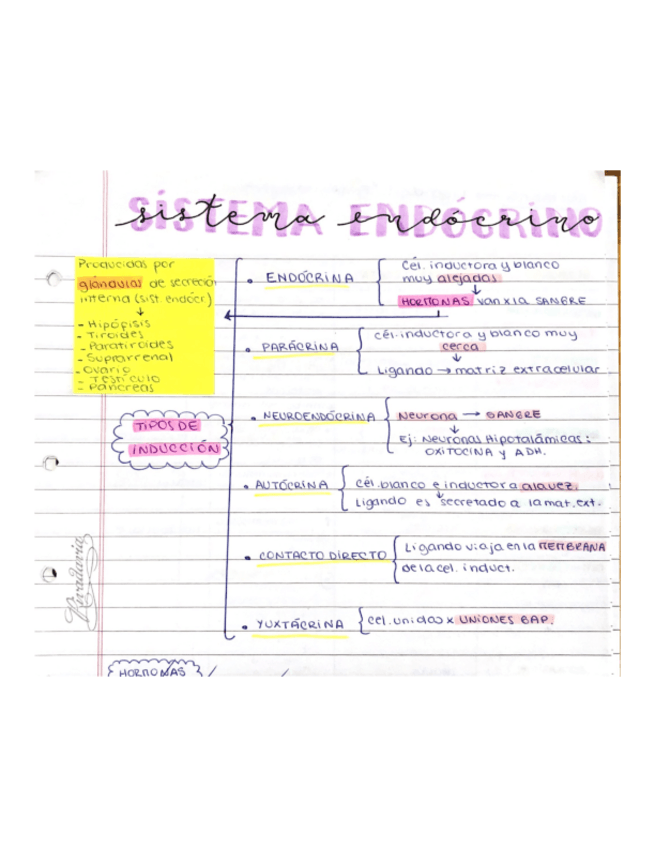 sistema endócrino
SISTEMA ENDÓCRINO
Producidas por
glándulas de secreción
interna (sist. endócr)
↓
- Hipófisis
- Tiroides
- Paratiroides
- Suprarrenal
- Ovario
- Testículo
- Páncreas
TIPOS DE
INDUCCIÓN
• ENDÓCRINA
Cél. inductora y blanco
muy alejadas
↓
HORMONAS van x la SANGRE
• PARÁCRINA
cél. inductora y blanco muy
cerca
↓
Ligando → matriz extracelular
• NEUROENDÓCRINA
Neurona → SANGRE
↓
Ej: Neuronas Hipotalámicas:
OXITOCINA y ADH.
• AUTÓCRINA
cél. blanco e inductora a la vez.
↓
Ligando es secretado a la mat. ext.
• CONTACTO DIRECTO
Ligando viaja en la MEMBRANA
de la cel. induct.
• YUXTÁCRINA
cel. unidas x UNIONES GAP.
HORMONAS
Rivadavia